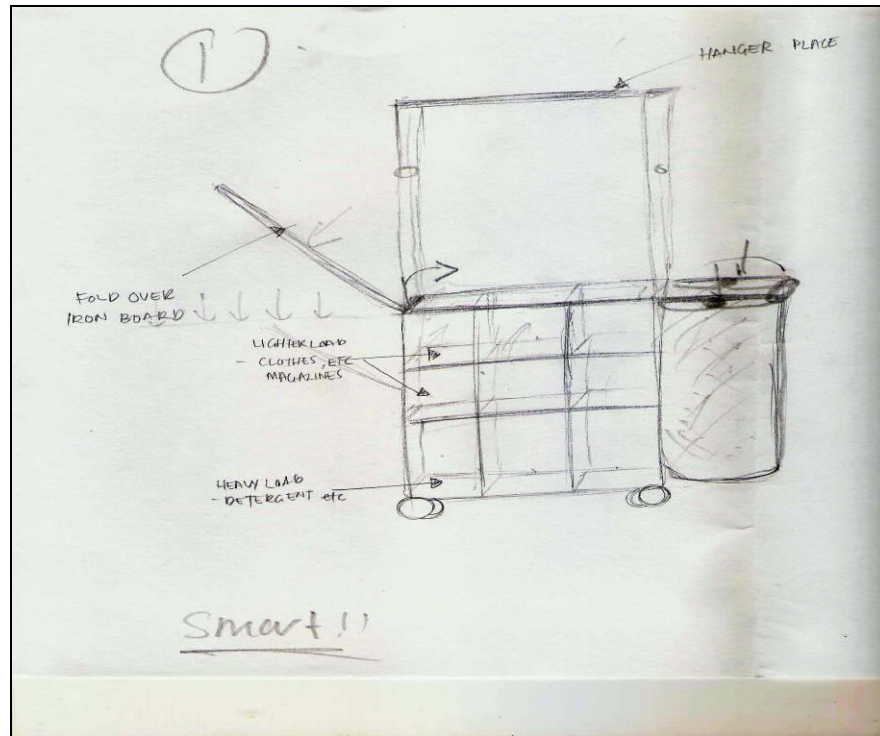 1
HANGER PLACE
FOLD OVER
IRON BOARD
LIGHTER LOAD
- CLOTHES, ETC
MAGAZINES
HEAVY LOAD
- DETERGENT etc
Smart!!